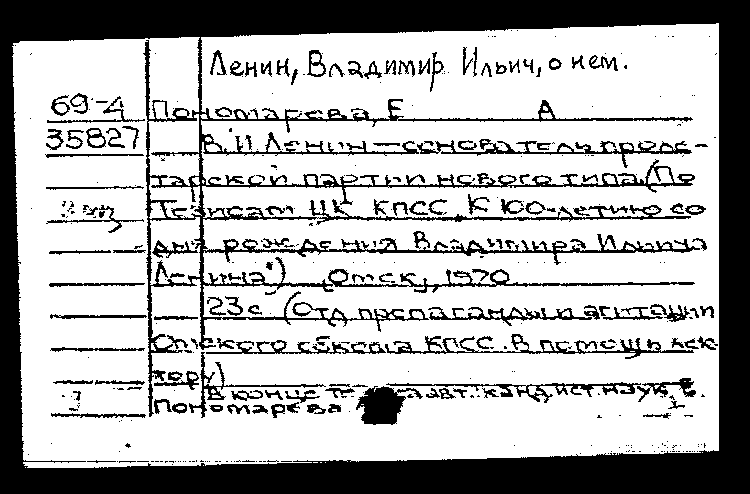 Ленин, Владимир Ильич, о нем.
69-4 Пономарева, Е А
35827 В.И.Ленин — основатель проле-
тарской партии нового типа. (По
Тезисам ЦК КПСС „К 100-летию со
дня рождения Владимира Ильича
Ленина") [Омск], 1970
23 с (Отд. пропаганды и агитации
Омского обкома КПСС. В помощь лек-
тору)
В конце авт: канд. ист. наук, Е.
Пономарева